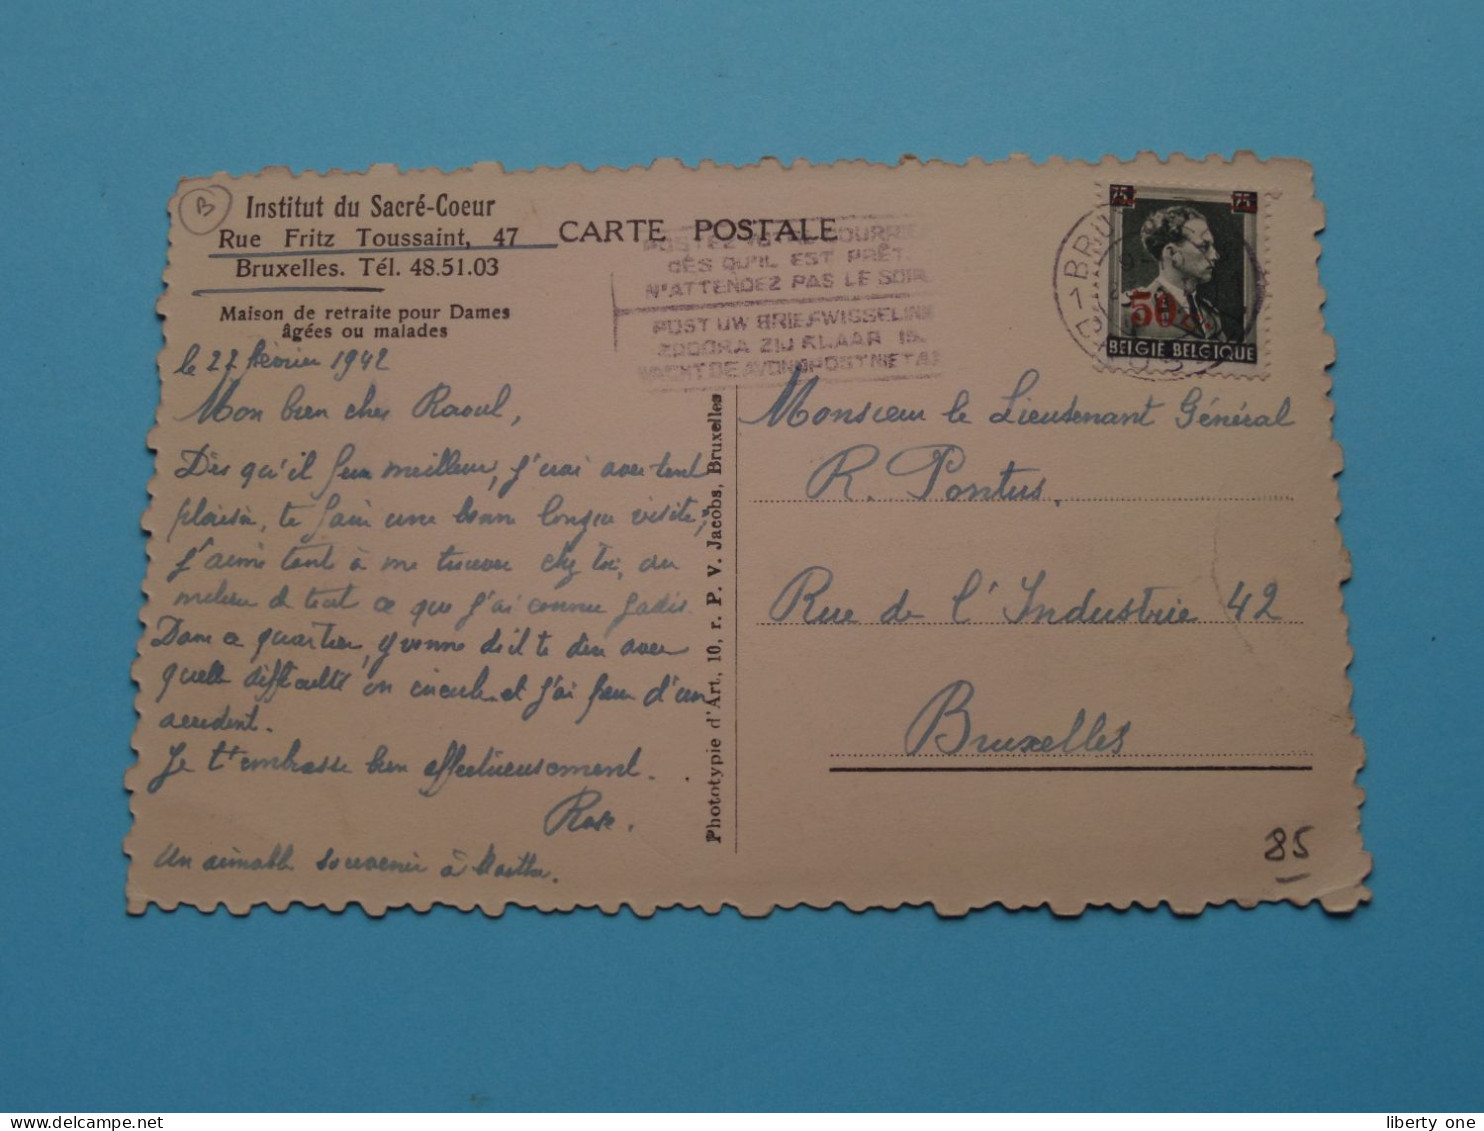 B
Institut du Sacré-Coeur
Rue Fritz Toussaint, 47
Bruxelles. Tél. 48.51.03
Maison de retraite pour Dames
âgées ou malades
CARTE POSTALE
POSTEZ VOTRE COURRIER
DÈS QU'IL EST PRÊT.
N'ATTENDEZ PAS LE SOIR
POST UW BRIEFWISSELING
ZOODRA ZIJ KLAAR IS.
WACHT DE AVONDPOST NIET AF
75 75
50 c.
BELGIE BELGIQUE
1 BRU
le 27 février 1942
Mon bien cher Raoul,
Dès qu'il fera meilleur, j'irai avec tant
plaisir, te faire une bonne longue visite;
j'aime tant à me trouver chez toi, au
milieu de tout ce que j'ai connu jadis.
Dans ce quartier, Yvonne doit te dire avec
quelle difficulté on circule et j'ai peur d'un
accident.
Je t'embrasse bien affectueusement.
Rose.
Un aimable souvenir à Marthe.
Phototypie d'Art, 10, r. P. V. Jacobs, Bruxelles
Monsieur le Lieutenant Général
R. Pontus.
Rue de l'Industrie 42
Bruxelles
85
liberty one